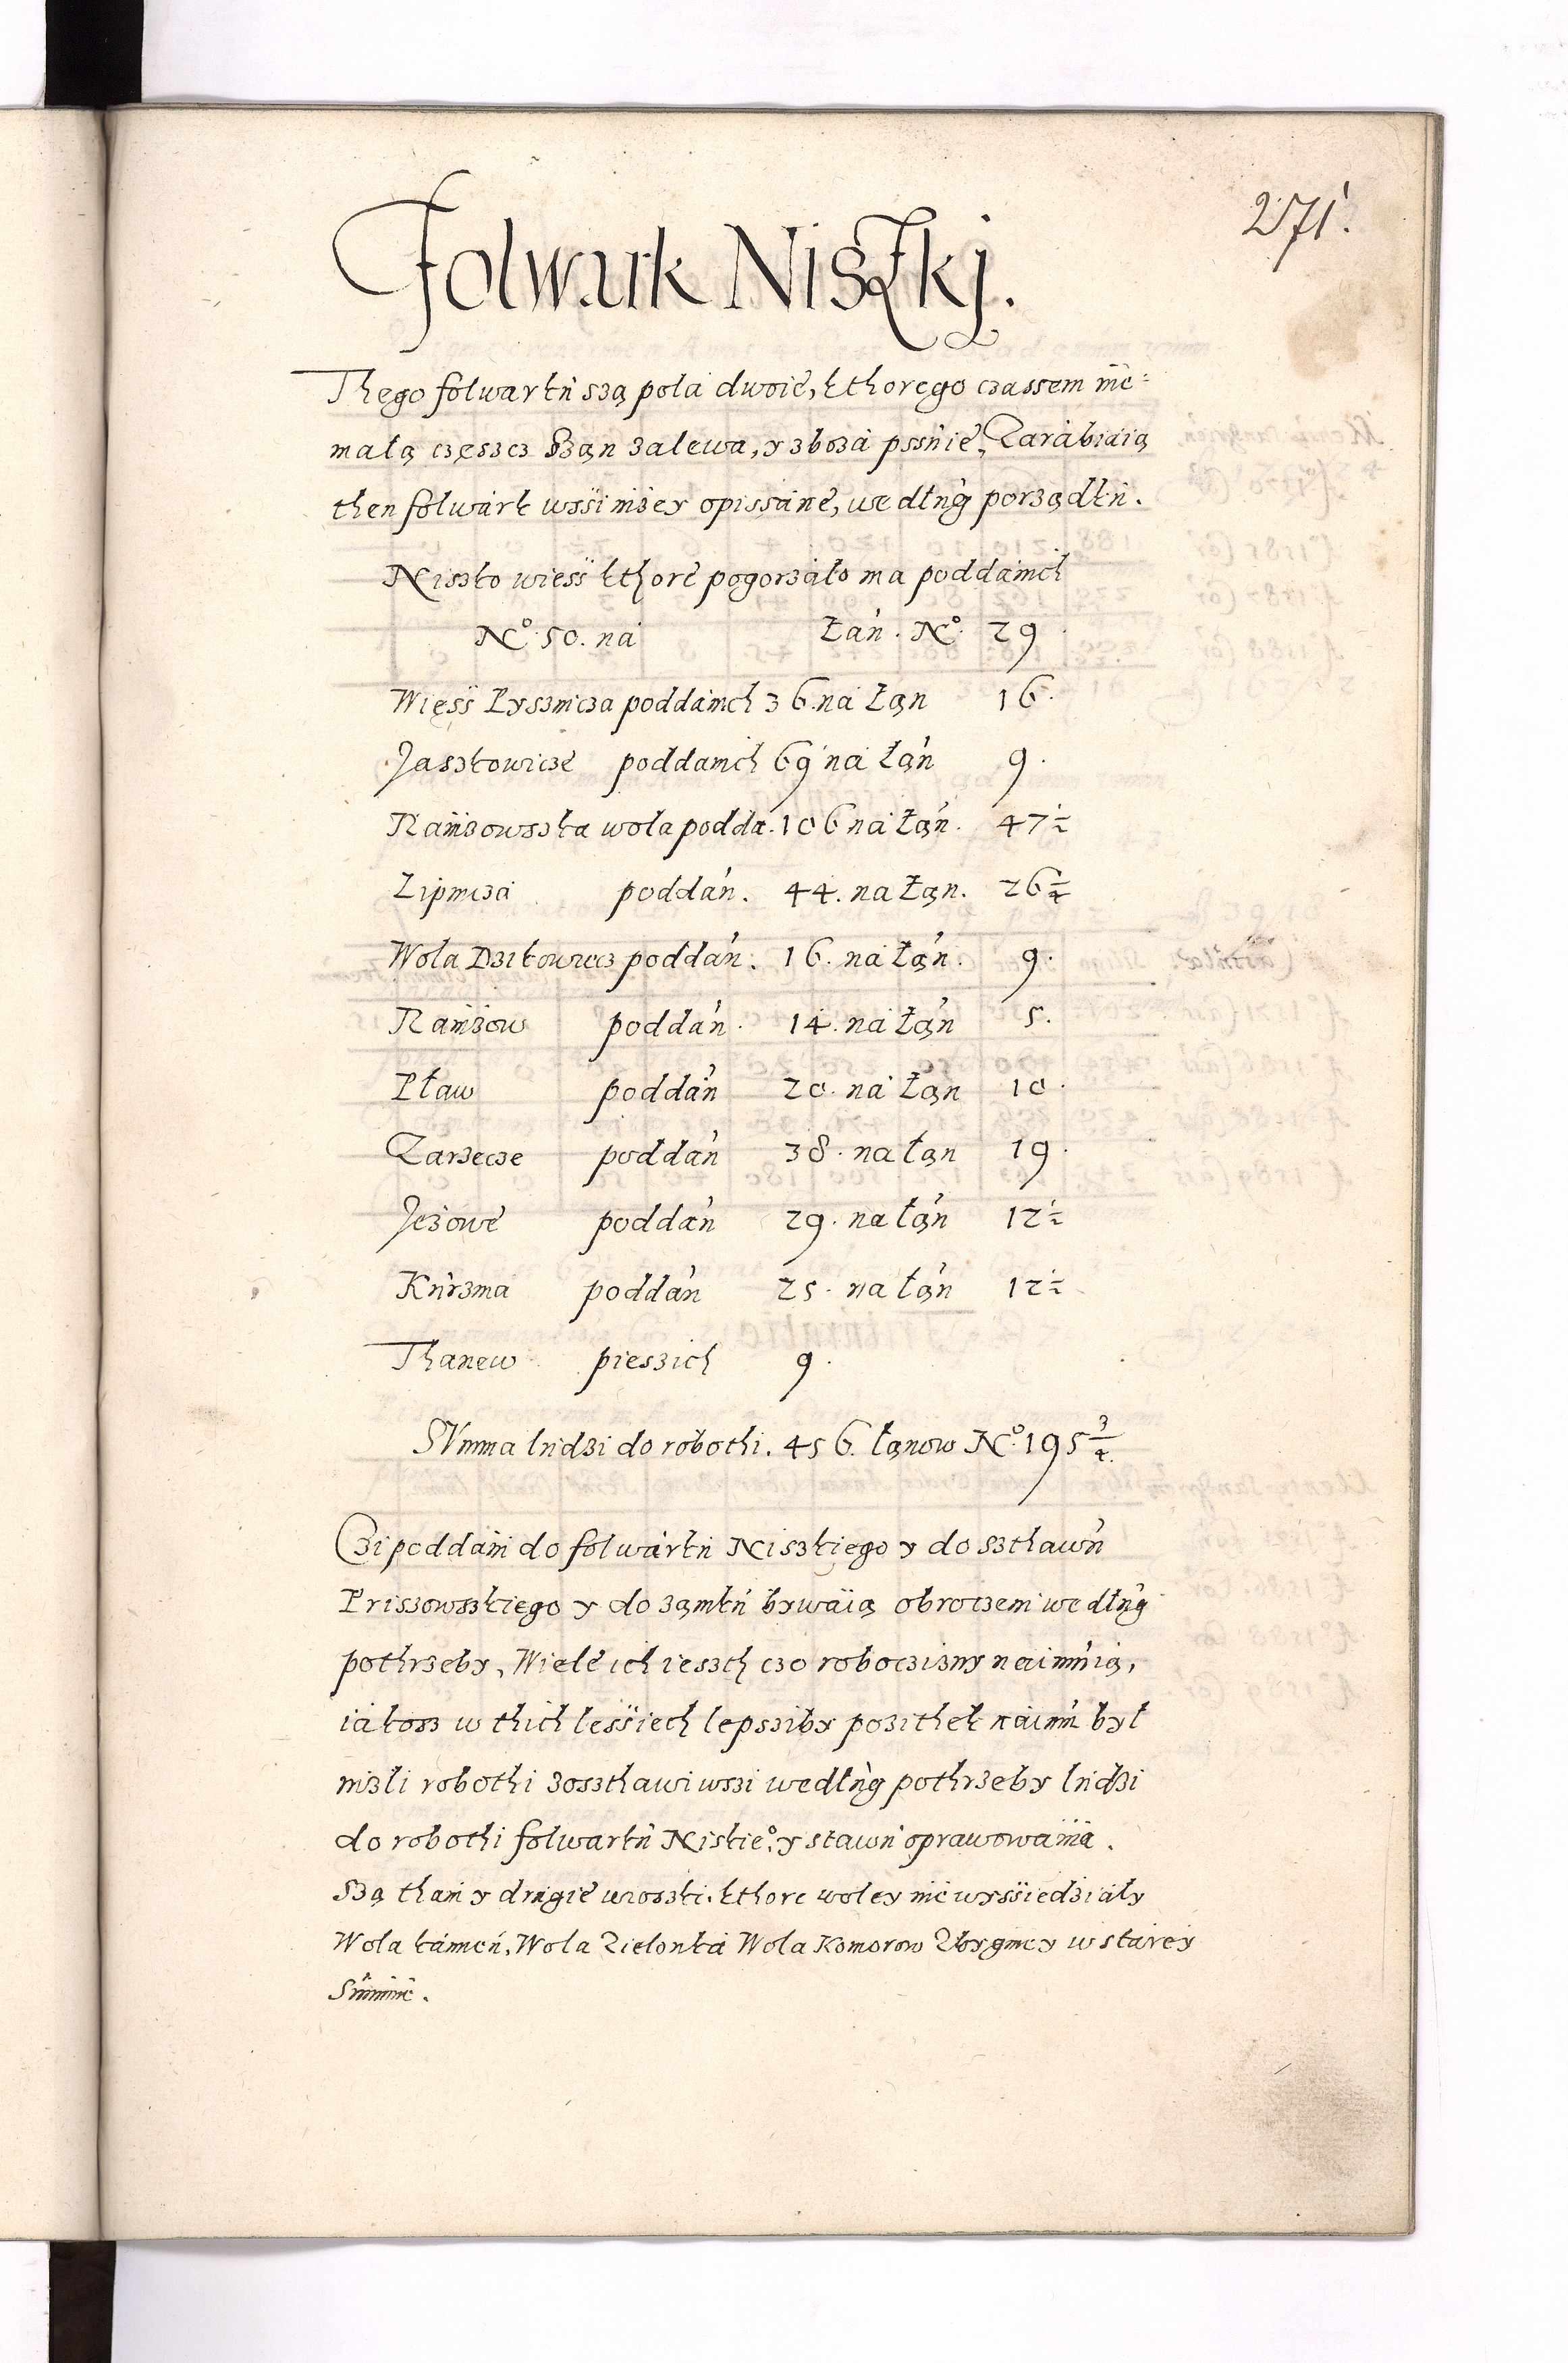 271.
Folwark Niszkj.
Thego folwarku szą pola dwoie, kthorego czassem nie=
małą częszcz Szan zalewa, y zboza pssuie, Zarabiaią
then folwark wssi nizey opissane, wedlug porządku.
Niszko wiess kthore pogorzało ma poddanich
No. 50. na Łan. No. 29
Wiess Pysznicza poddanich 36. na Łan 16.
Jaszkowicze poddanich 69 na łan 9.
Ranizowszka wola podda. 106 na Łan. 47½
Lipnicza poddan. 44. na Łan. 26¼
Wola Dzikowiecz poddan. 16. na łan. 9.
Ranizow poddan. 14. na łan 5.
Pław poddan 20. na Łan 10.
Zarzecze poddan 38. na łan 19.
Jezowe poddan 29. na łan 12½
Kurzina poddan 25. na łan 12½
Thanew pieszich 9.
SVmma ludzi do robothi. 456. łanow No. 195 3/4.
Czi poddani do folwarku Niszkiego y do szthawu
Priszowszkiego y do zamku bywaią obroczeni wedlug
pothrzeby, Wiele ich ieszth czo roboczizny naimuią,
iakosz w thich lessiech lepsziby pozithek naimu był
nizli robothi zoszthawiwszi wedlug pothrzeby ludzi
do robothi folwarku Niskieo. y stawu oprawowania.
Szą tham y drugie wioszki. kthore woley nie wyssiedziały
Wola kamień, Wola Zielonka Wola Komorow Zbygniey w starey
Summie.